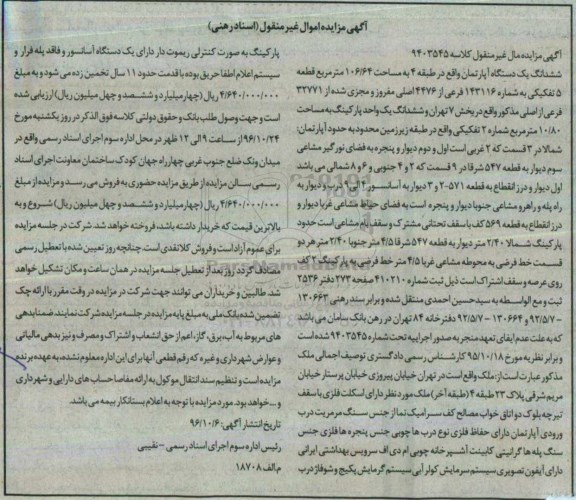 آگهی مزایده اموال غیر منقول (اسناد رهنی)
آگهی مزایده مال غیر منقول کلاسه ۹۴۰۳۵۴۵
ششدانگ یک دستگاه آپارتمان واقع در طبقه ۴ به مساحت ۱۰۶/۶۴ متر مربع قطعه
۵ تفکیکی به شماره ۱۴۳۱۱۶ فرعی از ۴۴۷۶ اصلی مفروز و مجزی شده از ۳۲۷۷۱
فرعی از اصلی مذکور واقع در بخش ۷ تهران و ششدانگ یک واحد پارکینگ به مساحت
۱۰/۸۰ متر مربع شماره ۲ تفکیکی واقع در طبقه زیرزمین محدود به حدود آپارتمان:
شمالا در ۳ قسمت که ۲ غربی است اول و دوم دیوار و پنجره به فضای نورگیر مشاعی
سوم دیوار به قطعه ۵۴۷ شرقا در ۹ قسمت که ۲ و ۴ جنوبی و ۶ و ۸ شمالی می باشد
اول دیوار و درز انقطاع به قطعه ۵۷۱-۲ و ۳ دیوار به آسانسور ۴ الی ۹ درب و دیوار به
راه پله و راهرو مشاعی جنوبا دیوار و پنجره است به فضای حیاط مشاعی غربا دیوار و
درز انقطاع به قطعه ۵۶۹ کف با سقف تحتانی مشترک و سقف بام مشاعی است حدود
پارکینگ شمالا ۲/۴۰ متر دیوار به قطعه ۵۴۷ شرقا ۴/۵ متر جنوبا ۲/۴۰ متر هر دو
قسمت خط فرضی به محوطه مشاعی غربا ۴/۵ متر خط فرضی به پارکینگ ۲ کف
روی عرصه و سقف اشتراک است ذیل ثبت شماره ۴۱۰۲۱۰ صفحه ۲۷۳ دفتر ۲۵۳۶
ثبت و مع الواسطه به سید حسین احمدی منتقل شده و برابر سند رهنی ۱۳۰۶۶۳
-۹۲/۵/۷ و ۱۳۰۶۶۴ -۹۲/۵/۷ دفترخانه ۸۴ تهران در رهن بانک سامان می باشد
که به علت عدم ایفای تعهد منجر به صدور اجراییه تحت شماره ۹۴۰۳۵۴۵ شده است
و برابر نظریه مورخ ۹۵/۱۰/۱۸ کارشناس رسمی دادگستری توصیف اجمالی ملک
مذکور عبارت است از: ملک واقع است در تهران خیابان پیروزی خیابان پرستار خیابان
مریم شرقی پلاک ۲۳ طبقه ۴ (طبقه آخر) ملک مورد نظر دارای اسکلت فلزی با سقف
تیرچه بلوک دو اتاق خواب مصالح کف سرامیک نما از جنس سنگ مرمریت درب
ورودی آپارتمان دارای حفاظ فلزی نوع درب ها چوبی جنس پنجره ها فلزی جنس
سنگ پله ها گرانیتی کابینت آشپزخانه چوبی ام دی اف سرویس بهداشتی ایرانی
دارای آیفون تصویری سیستم سرمایش کولر آبی سیستم گرمایش پکیج و شوفاژ درب
پارکینگ به صورت کنترلی ریموت دار دارای یک دستگاه آسانسور و فاقد پله فرار و
سیستم اعلام اطفا حریق بوده با قدمت حدود ۱۱ سال تخمین زده می شود و به مبلغ
۴/۶۴۰/۰۰۰/۰۰۰ ریال (چهار میلیارد و ششصد و چهل میلیون ریال) ارزیابی شده
است و جهت وصول طلب بانک و حقوق دولتی کلاسه فوق الذکر در روز یکشنبه مورخ
۹۶/۱۰/۲۴ از ساعت ۹ الی ۱۲ ظهر در محل اداره سوم اجرای اسناد رسمی واقع در
میدان ونک ضلع جنوب غربی چهارراه جهان کودک ساختمان معاونت اجرای اسناد
رسمی سالن مزایده از طریق مزایده حضوری به فروش می رسد و مزایده از مبلغ
۴/۶۴۰/۰۰۰/۰۰۰ ریال (چهار میلیارد و ششصد و چهل میلیون ریال) شروع و به
بالاترین قیمت که خریدار داشته باشد، فروخته خواهد شد. شرکت در جلسه مزایده
برای عموم آزاد است و فروش کلا نقدی است. چنانچه روز تعیین شده با تعطیل رسمی
مصادف گردد روز بعد از تعطیل جلسه مزایده در همان ساعت و مکان تشکیل خواهد
شد. طالبین و خریداران می توانند جهت شرکت در مزایده در وقت مقرر با ارائه چک
تضمین شده بانک ملی به مبلغ پایه مزایده در جلسه مزایده شرکت نمایند. ضمنا بدهی
های مربوط به آب، برق، گاز، اعم از حق انشعاب و اشتراک و مصرف و نیز بدهی مالیاتی
و عوارض شهرداری و غیره که رقم قطعی آنها برای این اداره معلوم نشده، به عهده برنده
مزایده است و تنظیم سند انتقال موکول به ارائه مفاصا حساب های دارایی و شهرداری
و ... خواهد بود. مورد مزایده با توجه به اعلام بستانکار بیمه می باشد.
تاریخ انتشار آگهی: ۹۶/۱۰/۶
رئیس اداره سوم اجرای اسناد رسمی - نقیبی
م الف ۱۸۷۰۸